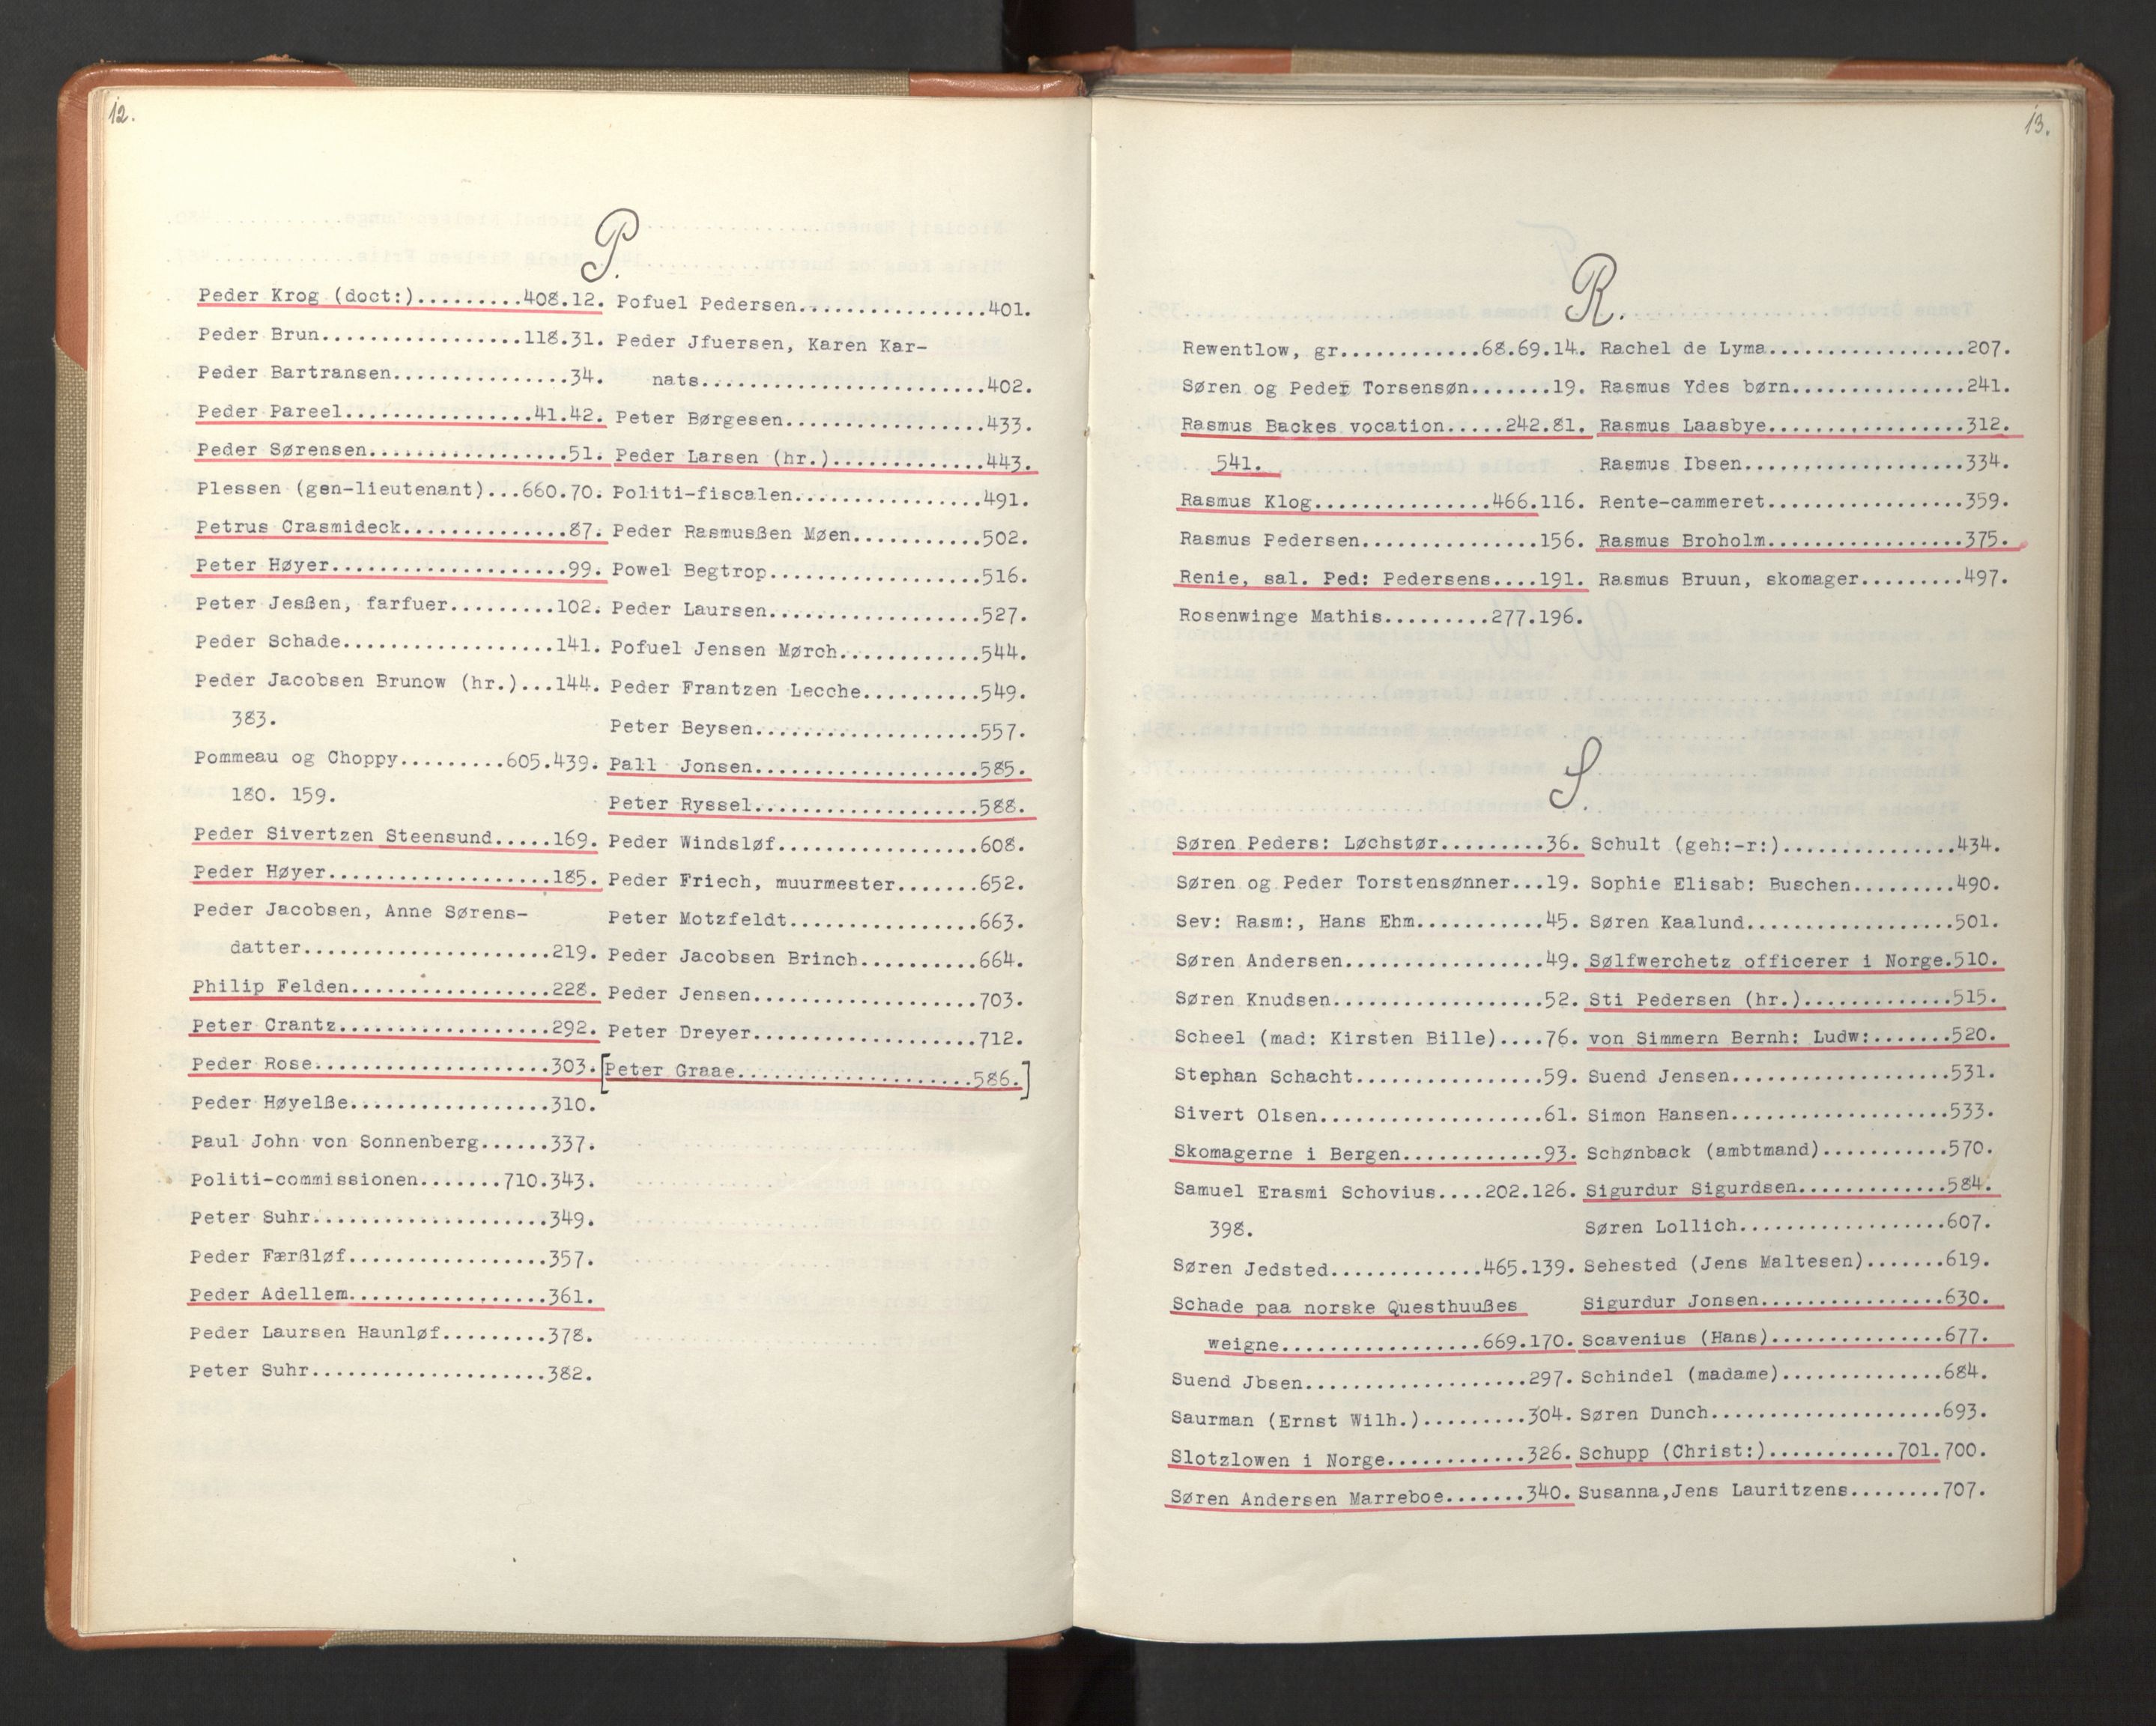 12.
P.
Peder Krog (doct:).........408.12.
Peder Brun.................118.31.
Peder Bartransen...............34.
Peder Pareel................41.42.
Peder Sørensen.................51.
Plessen (gen-lieutenant)...660.70.
Petrus Crasmideck..............87.
Peter Høyer....................99.
Peter Jesßen, farfuer.........102.
Peder Schade..................141.
Peder Jacobsen Brunow (hr.)...144.
383.
Pommeau og Choppy.........605.439.
180. 159.
Peder Sivertzen Steensund.....169.
Peder Høyer...................185.
Peder Jacobsen, Anne Sørens-
datter.....................219.
Philip Felden.................228.
Peter Crantz..................292.
Peder Rose....................303.
Peder Høyelße.................310.
Paul John von Sonnenberg......337.
Politi-commissionen.......710.343.
Peter Suhr....................349.
Peder Færßløf.................357.
Peder Adellem.................361.
Peder Laursen Haunløf.........378.
Peter Suhr....................382.
Pofuel Pedersen................401.
Peder Jfuersen, Karen Kar-
nats........................402.
Peter Børgesen.................433.
Peder Larsen (hr.).............443.
Politi-fiscalen................491.
Peder Rasmusßen Møen...........502.
Powel Begtrop..................516.
Peder Laursen..................527.
Pofuel Jensen Mørch............544.
Peder Frantzen Lecche..........549.
Peter Beysen...................557.
Pall Jonsen...................585.
Peter Ryssel...................588.
Peder Windsløf.................608.
Peder Friech, muurmester.......652.
Peter Motzfeldt................663.
Peder Jacobsen Brinch..........664.
Peder Jensen...................703.
Peter Dreyer...................712.
[Peter Graae....................586.]
13.
R.
Rewentlow, gr............68.69.14.
Søren og Peder Torsensøn.......19.
Rasmus Backes vocation.....242.81.
541.
Rasmus Klog...............466.116.
Rasmus Pedersen...............156.
Renie, sal. Ped: Pedersens....191.
Rosenwinge Mathis.........277.196.
Rachel de Lyma.................207.
Rasmus Ydes børn...............241.
Rasmus Laasbye.................312.
Rasmus Ibsen...................334.
Rente-cammeret.................359.
Rasmus Broholm.................375.
Rasmus Bruun, skomager.........497.
S.
Søren Peders: Løchstør.........36.
Søren og Peder Torstensønner...19.
Sev: Rasm:, Hans Ehm...........45.
Søren Andersen.................49.
Søren Knudsen..................52.
Scheel (mad: Kirsten Bille)....76.
Stephan Schacht................59.
Sivert Olsen...................61.
Skomagerne i Bergen............93.
Samuel Erasmi Schovius....202.126.
398.
Søren Jedsted.............465.139.
Schade paa norske Questhuußes
weigne.................669.170.
Suend Jbsen...................297.
Saurman (Ernst Wilh.).........304.
Slotzlowen i Norge............326.
Søren Andersen Marreboe.......340.
Schult (geh:-r:)...............434.
Sophie Elisab: Buschen.........490.
Søren Kaalund..................501.
Sølfwerchetz officerer i Norge.510.
Sti Pedersen (hr.).............515.
von Simmern Bernh: Ludw:.......520.
Suend Jensen...................531.
Simon Hansen...................533.
Schønback (ambtmand)...........570.
Sigurdur Sigurdsen.............584.
Søren Lollich..................607.
Sehested (Jens Maltesen).......619.
Sigurdur Jonsen................630.
Scavenius (Hans)...............677.
Schindel (madame)..............684.
Søren Dunch....................693.
Schupp (Christ:)...........701.700.
Susanna,Jens Lauritzens........707.